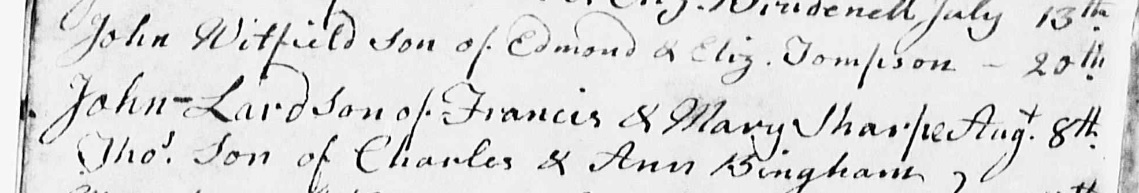 & Eliz. Brudenell July 13th
John Witfield Son of Edmond & Eliz. Tompson - 20th
John-Lard Son of Francis & Mary Sharpe Augt. 8th.
Thos. Son of Charles & Ann Bingham